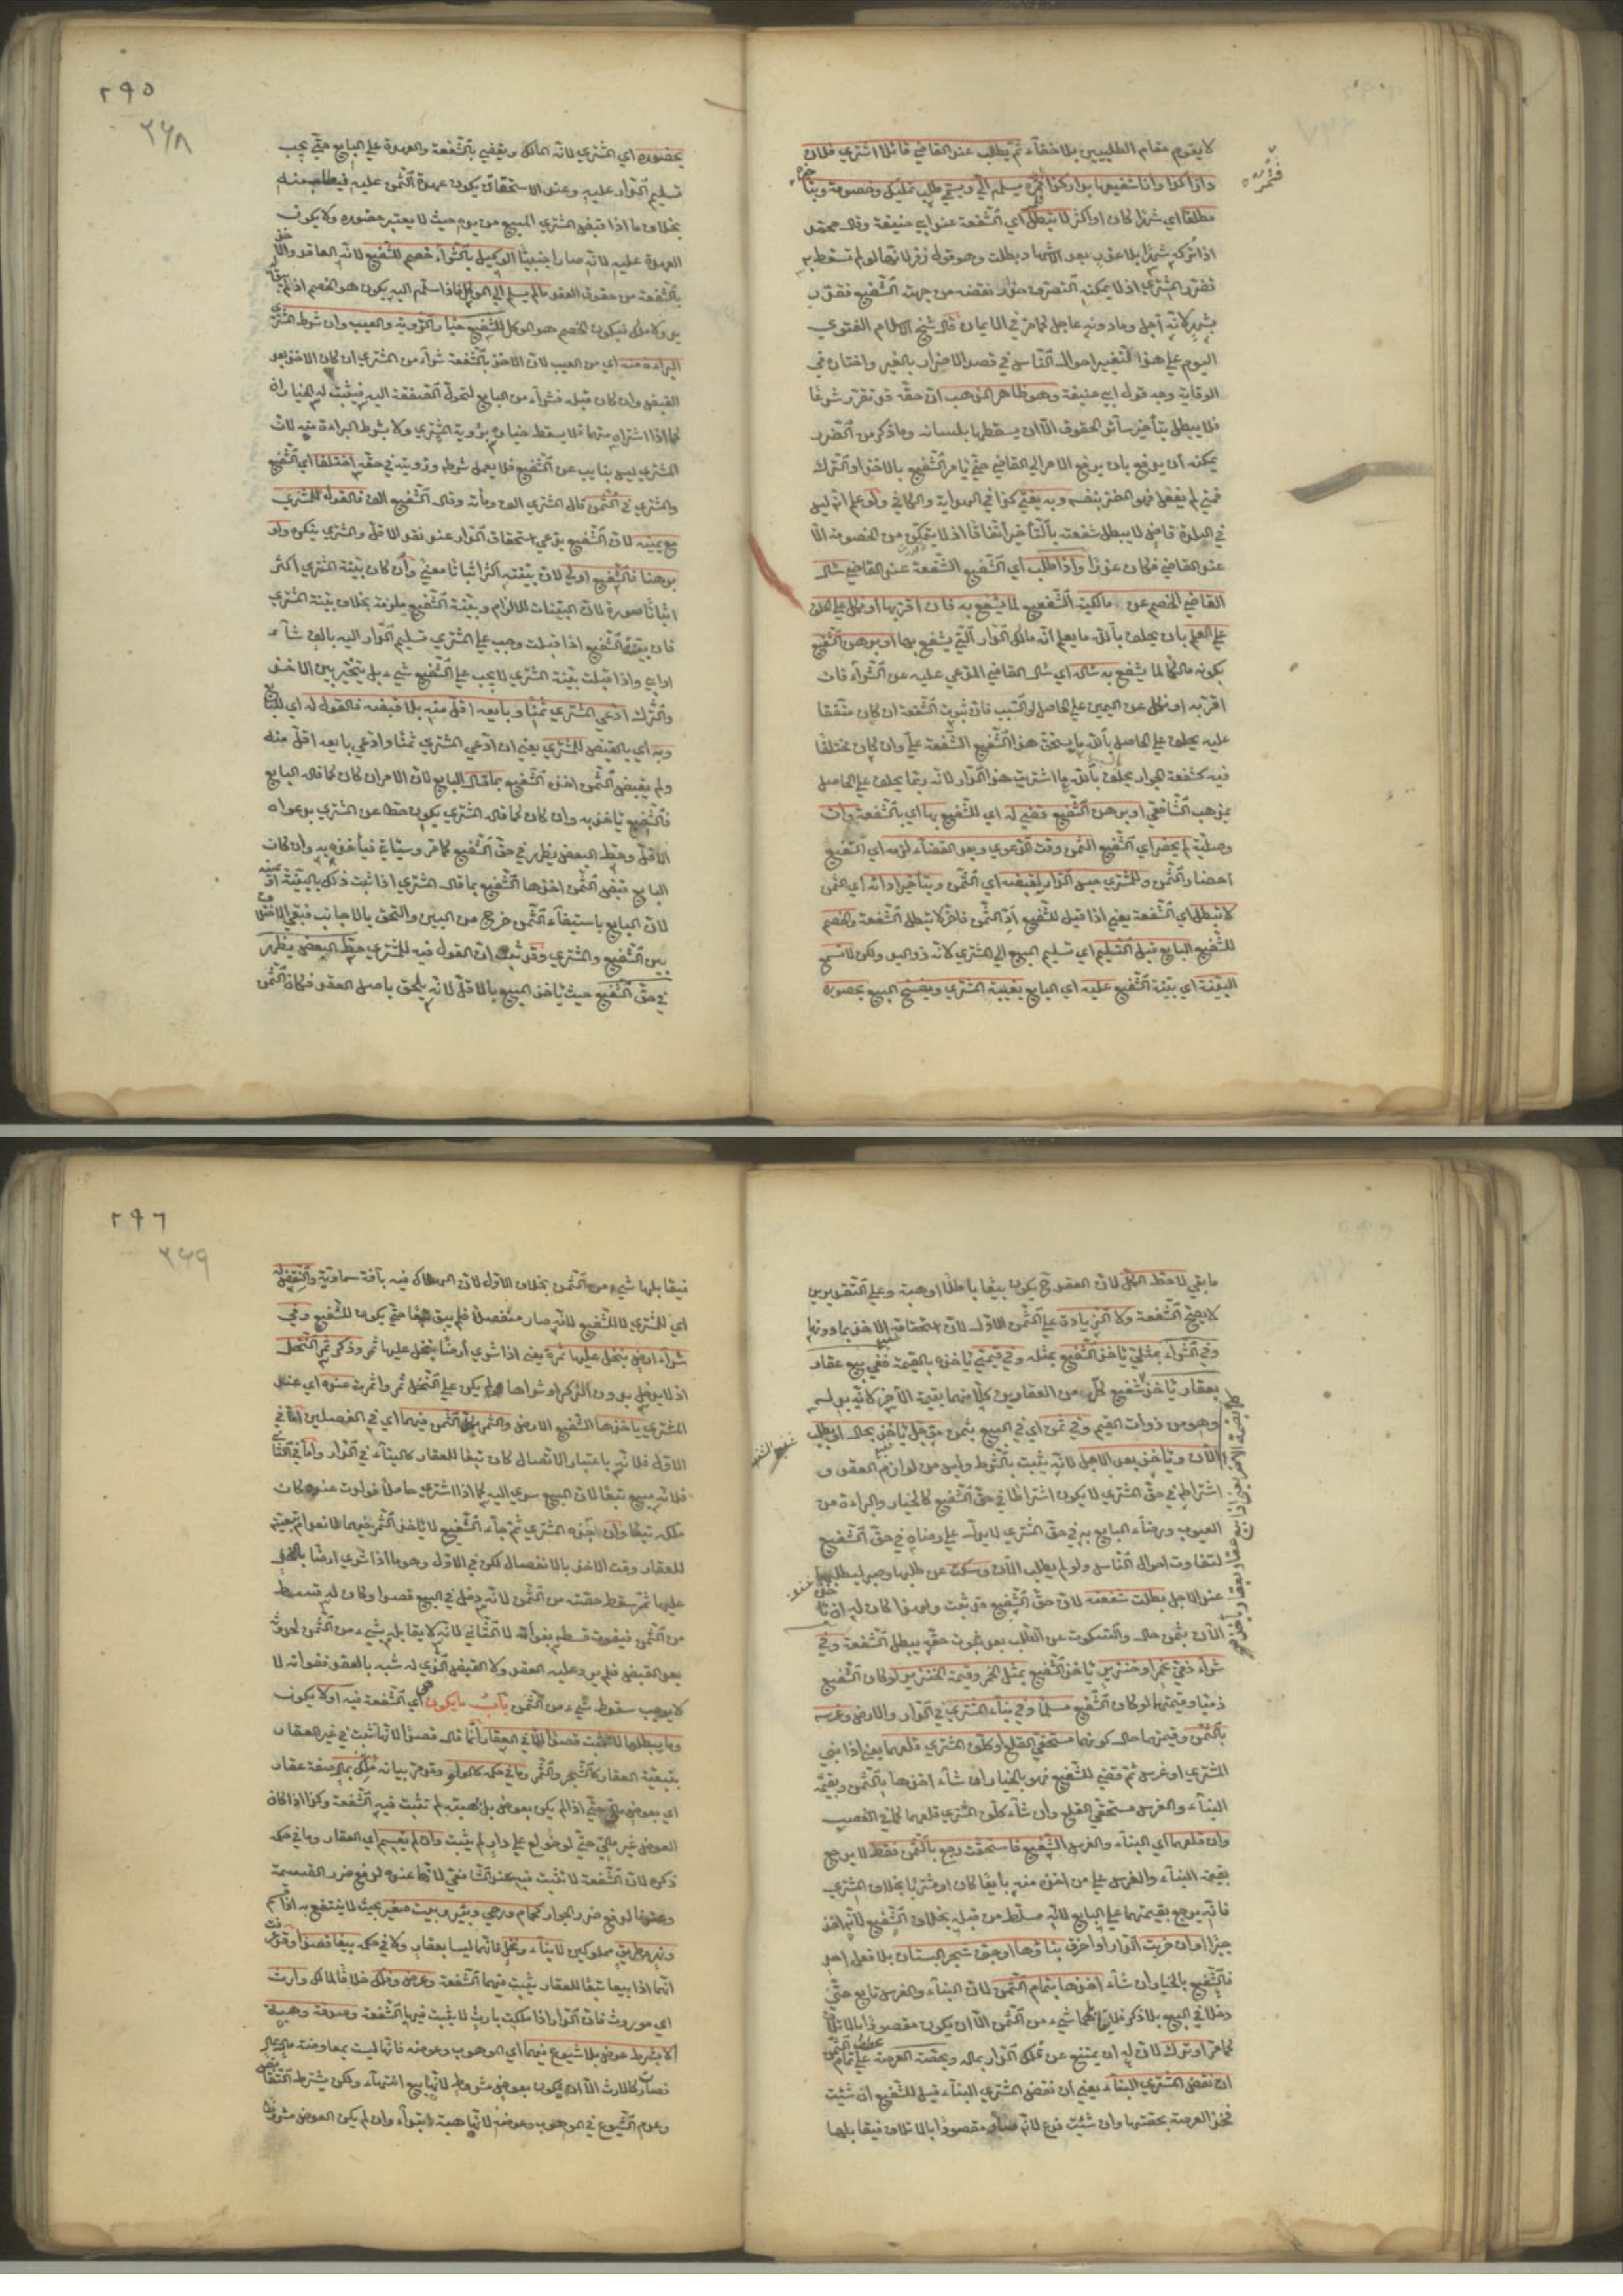 لا يقوم مقام الطلبين بلا خفاء ثم يطلب عند القاضي قائلا اشترى فلان
دارا كذا وانا شفيعها بدار كذا فمره يسلم الي ويسمى طلب تمليك وخصومة وبتاخيره
مطلقا اي شهرا كان او اكثر لا تبطل اي الشفعة عند ابي حنيفة وقال محمد
اذا تركه شهرا بلا عذر بعد الاشهاد بطلت وهو قول زفر لانها لو لم تسقط به
تضرر المشتري اذ لا يمكنه التصرف حذر نقضه من جهة الشفيع فقدر
بشهر لانه آجل وما دونه عاجل كما مر في الايمان قال شيخ الاسلام الفتوى
اليوم على هذا لتغير احوال الناس في قصد الاضرار بالغير واختار في
الوقاية وجه قول ابي حنيفة وهو ظاهر المذهب ان حقه قد تقرر شرعا
فلا يبطل بتأخير سائر الحقوق الا ان يسقطها بلسانه وما ذكر من الضرر
يمكنه ان يدفع بان يرفع الامر الى القاضي حتى يامر الشفيع بالاخذ او الترك
فمتى لم يفعل فهو المضر بنفسه وبه يفتى كذا في الهداية والكافي ولو علم انه ليس
في البلدة قاض لا يبطل شفعته بالتأخير اتفاقا اذ لا يتمكن من الخصومة الا
عند القاضي فكان عذرا واذا طلب اي الشفيع الشفعة عند القاضي سال
القاضي الخصم عن مالكية الشفيع لما يشفع به فان اقر بها او نكل على الحلف
على العلم بان يحلف بالله ما يعلم انه مالك الدار التي يشفع بها او برهن الشفيع
بكونه مالكا لما يشفع به سأله اي سال القاضي المدعى عليه عن الشراء فان
اقر به او نكل عن اليمين على الحاصل او السبب فان ثبوت الشفعة ان كان متفقا
عليه يحلف على الحاصل بالله ما يستحق هذا الشفيع الشفعة علي وان كان مختلفا
فيه كشفعة الجوار يحلف بالله ما اشتريت هذا الدار لانه ربما يحلف على الحاصل
بمذهب الشافعي او برهن الشفيع قضي له اي للشفيع بها اي بالشفعة وان
وصلية لم يحضر اي الشفيع الثمن وقت الدعوى وبعد القضاء لزمه اي الشفيع
احضار الثمن وللمشتري حبس الدار لقبضه اي الثمن وبتأخير ادائه اي الثمن
لا تبطل اي الشفعة يعني اذا قيل للشفيع اد الثمن فاخر لا تبطل الشفعة والخصم
للشفيع البايع قبل التسليم اي تسليم المبيع الى المشتري لانه ذو اليد ولكن لا تسمع
البينة اي بينة الشفيع عليه اي البايع بغيبة المشتري ويفسخ البيع بحضوره
٢٩٥
٣٦٨
بحضوره اي المشتري لانه المالك ويقضي بالشفعة والعهدة على البايع حتى يجب
تسليم الدار عليه وعند الاستحقاق يكون عهدة الثمن عليه فيطلب منه
بخلاف ما اذا قبض المشتري المبيع من يده حيث لا يعتبر حضوره ولا يكون
العهدة عليه لانه صار اجنبيا الوكيل بالشراء خصم للشفيع لانه العاقد والاخذ
بالشفعة من حقوق العقد ما لم يسلم الى الموكل فاذا سلم اليه يكون هو الخصم اذ لم يبق له
يد ولا ملك فيكون الخصم هو الموكل للشفيع خيار الرؤية والعيب وان شرط المشتري
البراءة منه اي من العيب لان الاخذ بالشفعة شراء من المشتري ان كان الاخذ بعد
القبض وان كان قبله فشراء من البايع لتحول الصفقة اليه فيثبت له الخياران
كما اذا اشتراه منهما فلا يسقط خياره برؤية المشتري ولا بشرط البراءة منه لان
المشتري ليس بنايب عن الشفيع فلا يعمل شرطه ورؤيته في حقه اختلفا اي الشفيع
والمشتري في الثمن قال المشتري الف ومأة وقال الشفيع الف فالقول للمشتري
مع يمينه لان الشفيع يدعي استحقاق الدار عند نقد الاقل والمشتري ينكره ولو
برهنا فالشفيع اولى لان بينته اكثر اثباتا معنى وان كان بينة المشتري اكثر
اثباتا صورة لان البينات للالزام وبينة الشفيع ملزمة بخلاف بينة المشتري
فان بينة الشفيع اذا قبلت وجب على المشتري تسليم الدار اليه بالف شاء
او ابى واذا قبلت بينة المشتري لا يجب على الشفيع شيء بل يتخير بين الاخذ
والترك ادعى المشتري ثمنا وبايعه اقل منه بلا قبضه فالقول له اي للبايع
وبه اي بالقبض للمشتري يعني ان ادعى المشتري ثمنا وادعى بايعه اقل منه
ولم يقبض الثمن اخذه الشفيع بما قال البايع لان الامر ان كان كما قال البايع
فالشفيع ياخذ به وان كان كما قال المشتري يكون حطا عن المشتري بدعواه
الاقل وحط البعض يظهر في حق الشفيع كما مر وسيأتي فيأخذه به وان كان
البايع قبض الثمن اخذها الشفيع بما قال المشتري اذا ثبت ذلك بالبينة او بيمينه
لان البايع باستيفاء الثمن خرج من البين والتحق بالاجانب فبقي الاختلاف
بين الشفيع والمشتري وقد ثبت ان القول فيه للمشتري حط البعض يظهر
في حق الشفيع حيث ياخذ المبيع بالاقل لانه يلحق باصل العقد فكان الثمن
ما بقي لا حط الكل لان العقد ح يكون بيعا باطلا او هبة وعلى التقديرين
لا يصح الشفعة ولا الزيادة على الثمن الاول لان استحقاقه الاخذ بما دونها
وفي الشراء بمثلي ياخذ الشفيع بمثله وفي قيمي ياخذه بالقيمة ففي بيع عقار
بعقار ياخذ شفيع كل من العقارين كلا منهما بقيمة الآخر لانه بدله
وهو من ذوات القيم وفي ثمن اي في المبيع بثمن مؤجل ياخذ بحال او يطلب
الآن وياخذ بعد الاجل لانه يثبت بالشرط وليس من لوازم العقد و
اشتراطه في حق المشتري لا يكون اشتراطا في حق الشفيع كالخيار والبراءة من
العيوب ورضاء البايع به في حق المشتري لا يدل على رضاه في حق الشفيع
لتفاوت احوال الناس ولو لم يطلب الآن وسكت عن طلبها وصبر ليطلبها
عند الاجل بطلت شفعته لان حق الشفيع قد ثبت ولهذا كان له ان ياخذ
الآن بثمن حال والسكوت عن الطلب بعد ثبوت حقه يبطل الشفعة وفي
شراء ذمي بخمر او خنزير ياخذ الشفيع بمثل الخمر وقيمة الخنزير لو كان الشفيع
ذميا وقيمتهما لو كان الشفيع مسلما وفي بناء المشتري في الدار والارض وغرسه
بالثمن وقيمتهما حال كونهما مستحقي القلع او كلف المشتري قلعهما يعني اذا بنى
المشتري او غرس ثم قضي للشفيع فهو بالخيار ان شاء اخذها بالثمن وبقيمة
البناء والغرس مستحقي القلع وان شاء كلف المشتري قلعهما كما في الغصب
وان قلعهما اي البناء والغرس الشفيع فاستحقت رجع بالثمن فقط لا يرجع
بقيمة البناء والغرس على من اخذه منه بايعا كان او مشتريا بخلاف المشتري
فانه يرجع بقيمتهما على البايع لانه مسلط من قبله بخلاف الشفيع لانه اخذ
جبرا او ان خربت الدار او احرق بناؤها او جف شجر البستان بلا فعل احد
فالشفيع بالخيار ان شاء اخذها بتمام الثمن لان البناء والغرس تابع حتى
دخلا في البيع بلا ذكر فلا يقابلهما شيء من الثمن الا ان يكون مقصودا بالاتلاف
كما مر او ترك لان له ان يمتنع عن تملك الدار بماله وبحصة العرصة على تمام الثمن
ان نقض المشتري البناء يعني ان نقض المشتري البناء قيل للشفيع ان شئت
فخذ العرصة بحصتها وان شئت فدع لانه صار مقصودا بالاتلاف فيقابلها
٢٩٦
٣٦٩
فيقابلها شيء من الثمن بخلاف الاول لان الهلاك فيه بآفة سماوية والنقض له
اي للمشتري لا للشفيع لانه صار منفصلا فلم يبق تبعا حتى يكون للشفيع وفي
شراء ارض بنخل عليها ثمرة يعني اذا شرى أرضا بنخل عليها ثمر وذكر ثمر النخل
اذ لا يدخل بدون الذكر او شراها ولم يكن على النخل ثمر واثمرت عنده اي عند
المشتري ياخذها الشفيع الارض والثمر بكل الثمن فيهما اي في الفصلين اما في
الاول فلانه باعتبار الاتصال كان تبعا للعقار كالبناء في الدار واما في الثاني
فلانه مبيع تبعا لان البيع سرى اليه كما اذا اشترى حاملا فولدت عنده كان
ملكه تبعا وان جذه المشتري ثم جاء الشفيع لا ياخذ الثمر فيهما لانعدام تبعيته
للعقار وقت الاخذ بالانفصال لكن في الاول وهو ما اذا شرى ارضا بنخل
عليها ثمر سقط حصته من الثمن لانه دخل في البيع قصدا وكان له قسط
من الثمن فيفوت قسطه بفواته لا الثاني لانه لا يقابله شيء من الثمن لحدوثه
بعد القبض فلم يرد عليه العقد ولا القبض الذي له شبه بالعقد ففواته لا
لا يوجب سقوط شيء من الثمن باب ما يكون هي اي الشفعة فيه او لا يكون
وما يبطلها لا تثبت قصدا الا في العقار انما قال قصدا لانها تثبت في غير العقار
بتبعية العقار كالشجر والثمر وما في حكمه كالعلو وقد مر بيانه ملك بمال صفة عقار
اي بعوض مالي حتى اذا لم يكن بعوض بل بهبة لم تثبت فيه الشفعة وكذا اذا كان
العوض غير مالي حتى لو خولع على دار لم يثبت وان لم يقسم اي العقار وما في حكمه
ذكره لان الشفعة لا تثبت فيه عند الشافعي لانها عنده لدفع ضرر القسمة
وعندنا لدفع ضرر الجوار كحمام ورحى وبئر وبيت صغير بحيث لا ينتفع به اذا قسم
ونهر وطريق مملوكين لا بناء ونخل فانهما ليسا بعقار ولا في حكمه بيعا قصدا وقد عرفت
انهما اذا بيعا تبعا للعقار يثبت فيهما الشفعة وعرض وفلك خلافا لمالك وارث
اي موروث فان الدار اذا ملكت بارث لا يثبت فيها الشفعة وصدقة وهبة
الا بشرط عوض بلا شيوع فيهما اي الموهوب وعوضه فانها ليست بمعاوضة مال بمال
فصار كالارث الا ان يكون بعوض مشروط لانها بيع انتهاء ولكن يشترط التقابض
وعدم الشيوع في الموهوب وعوضه لانها هبة ابتداء وان لم يكن العوض مشروطا